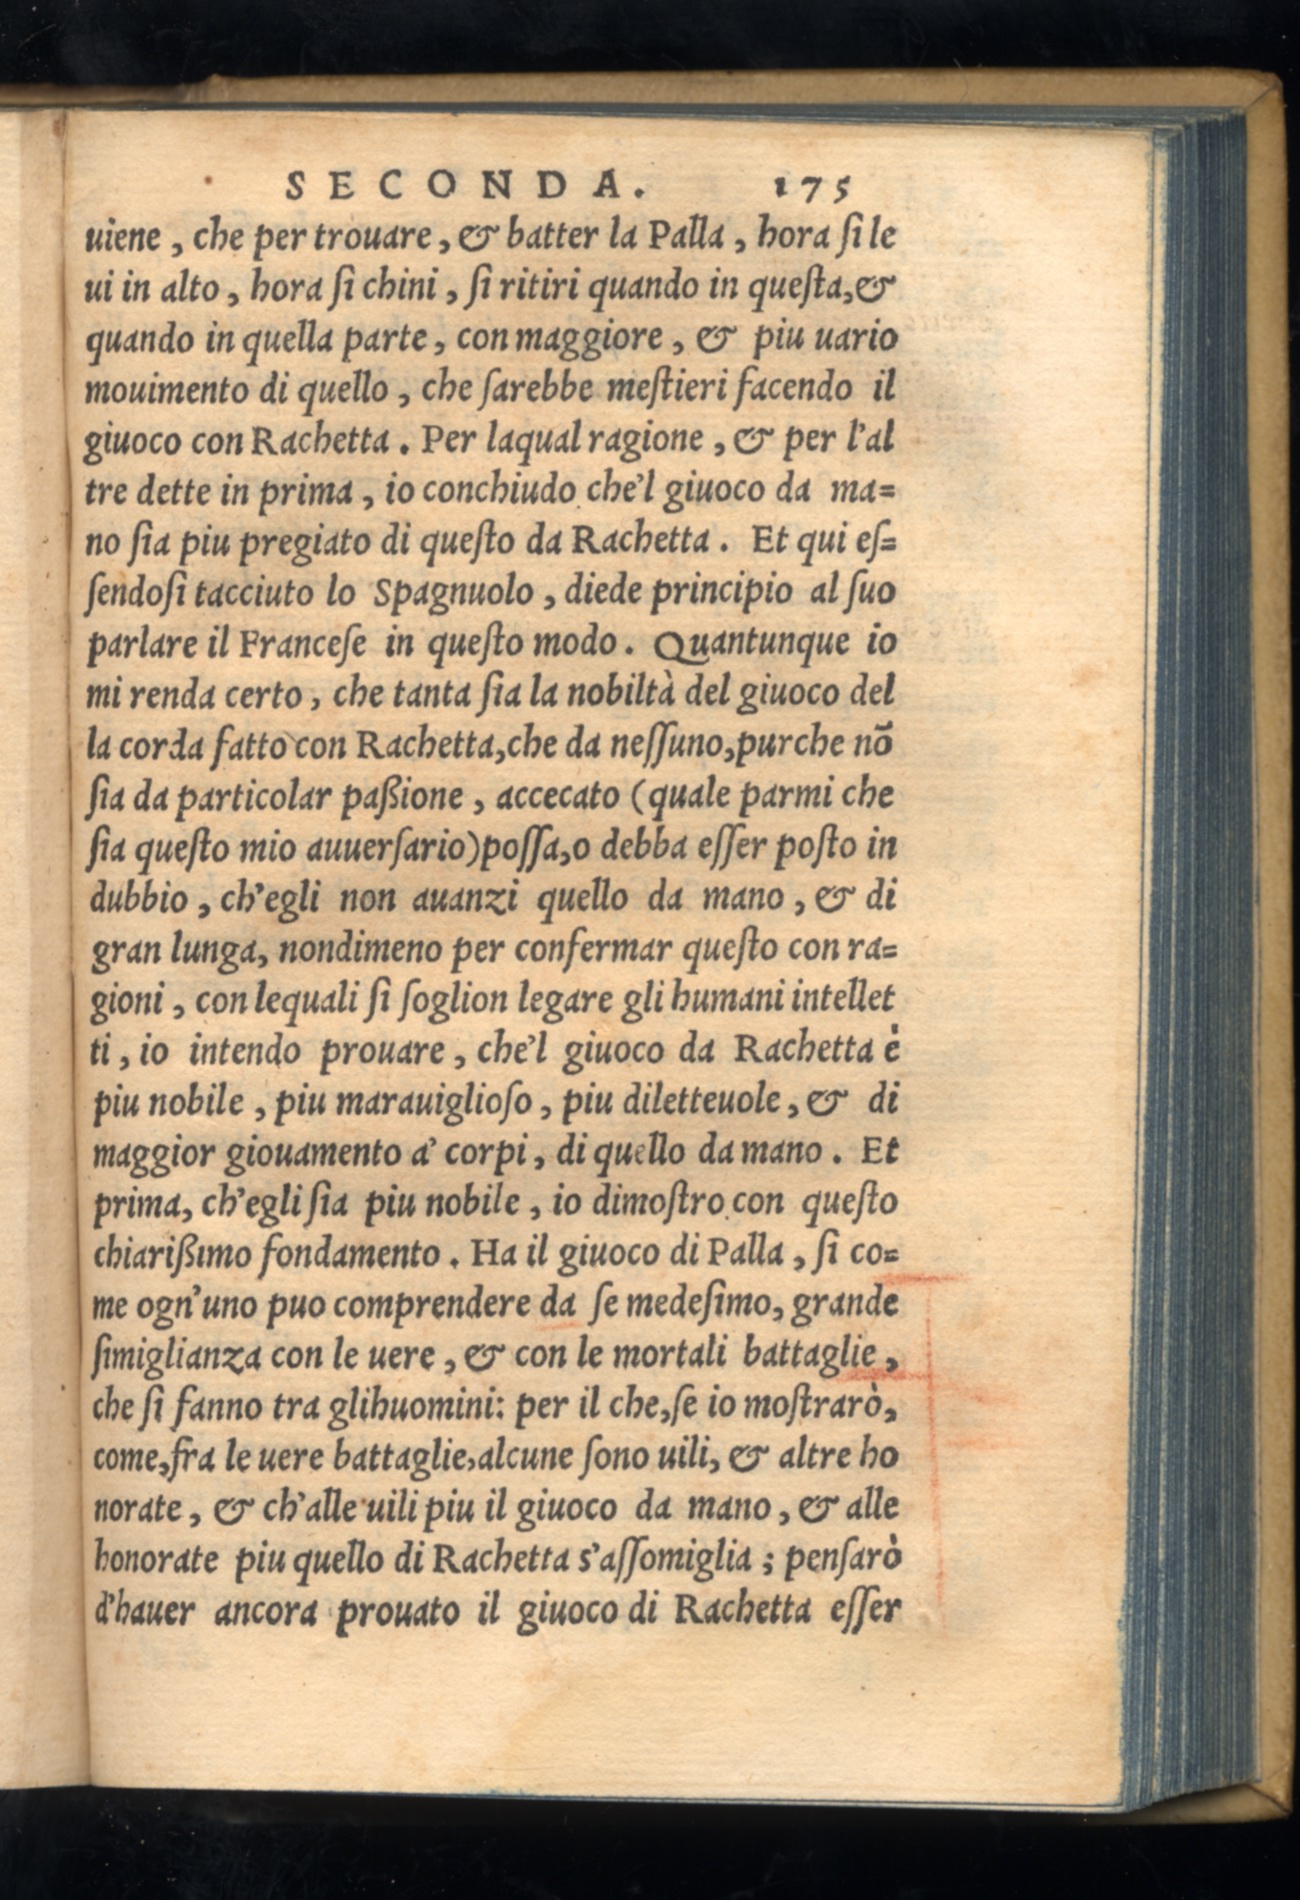 SECONDA. 175
uiene, che per trouare, & batter la Palla, hora ſi le
ui in alto, hora ſi chini, ſi ritiri quando in queſta, &
quando in quella parte, con maggiore, & piu uario
mouimento di quello, che ſarebbe meſtieri facendo il
giuoco con Rachetta. Per laqual ragione, & per l'al
tre dette in prima, io conchiudo che'l giuoco da ma=
no ſia piu pregiato di queſto da Rachetta. Et qui eſ=
ſendoſi tacciuto lo Spagnuolo, diede principio al ſuo
parlare il Franceſe in queſto modo. Quantunque io
mi renda certo, che tanta ſia la nobiltà del giuoco del
la corda fatto con Rachetta, che da neſſuno, purche nõ
ſia da particolar paßione, accecato (quale parmi che
ſia queſto mio auuerſario) poſſa, o debba eſſer poſto in
dubbio, ch'egli non auanzi quello da mano, & di
gran lunga, nondimeno per confermar queſto con ra=
gioni, con lequali ſi ſoglion legare gli humani intellet
ti, io intendo prouare, che'l giuoco da Rachetta è
piu nobile, piu marauiglioſo, piu diletteuole, & di
maggior giouamento a' corpi, di quello da mano. Et
prima, ch'egli ſia piu nobile, io dimoſtro con queſto
chiarißimo fondamento. Ha il giuoco di Palla, ſi co=
me ogn'uno puo comprendere da ſe medeſimo, grande
ſimiglianza con le uere, & con le mortali battaglie,
che ſi fanno tra glihuomini: per il che, ſe io moſtrarò,
come, fra le uere battaglie, alcune ſono uili, & altre ho
norate, & ch'alle uili piu il giuoco da mano, & alle
honorate piu quello di Rachetta s'aſſomiglia; penſarò
d'hauer ancora prouato il giuoco di Rachetta eſſer